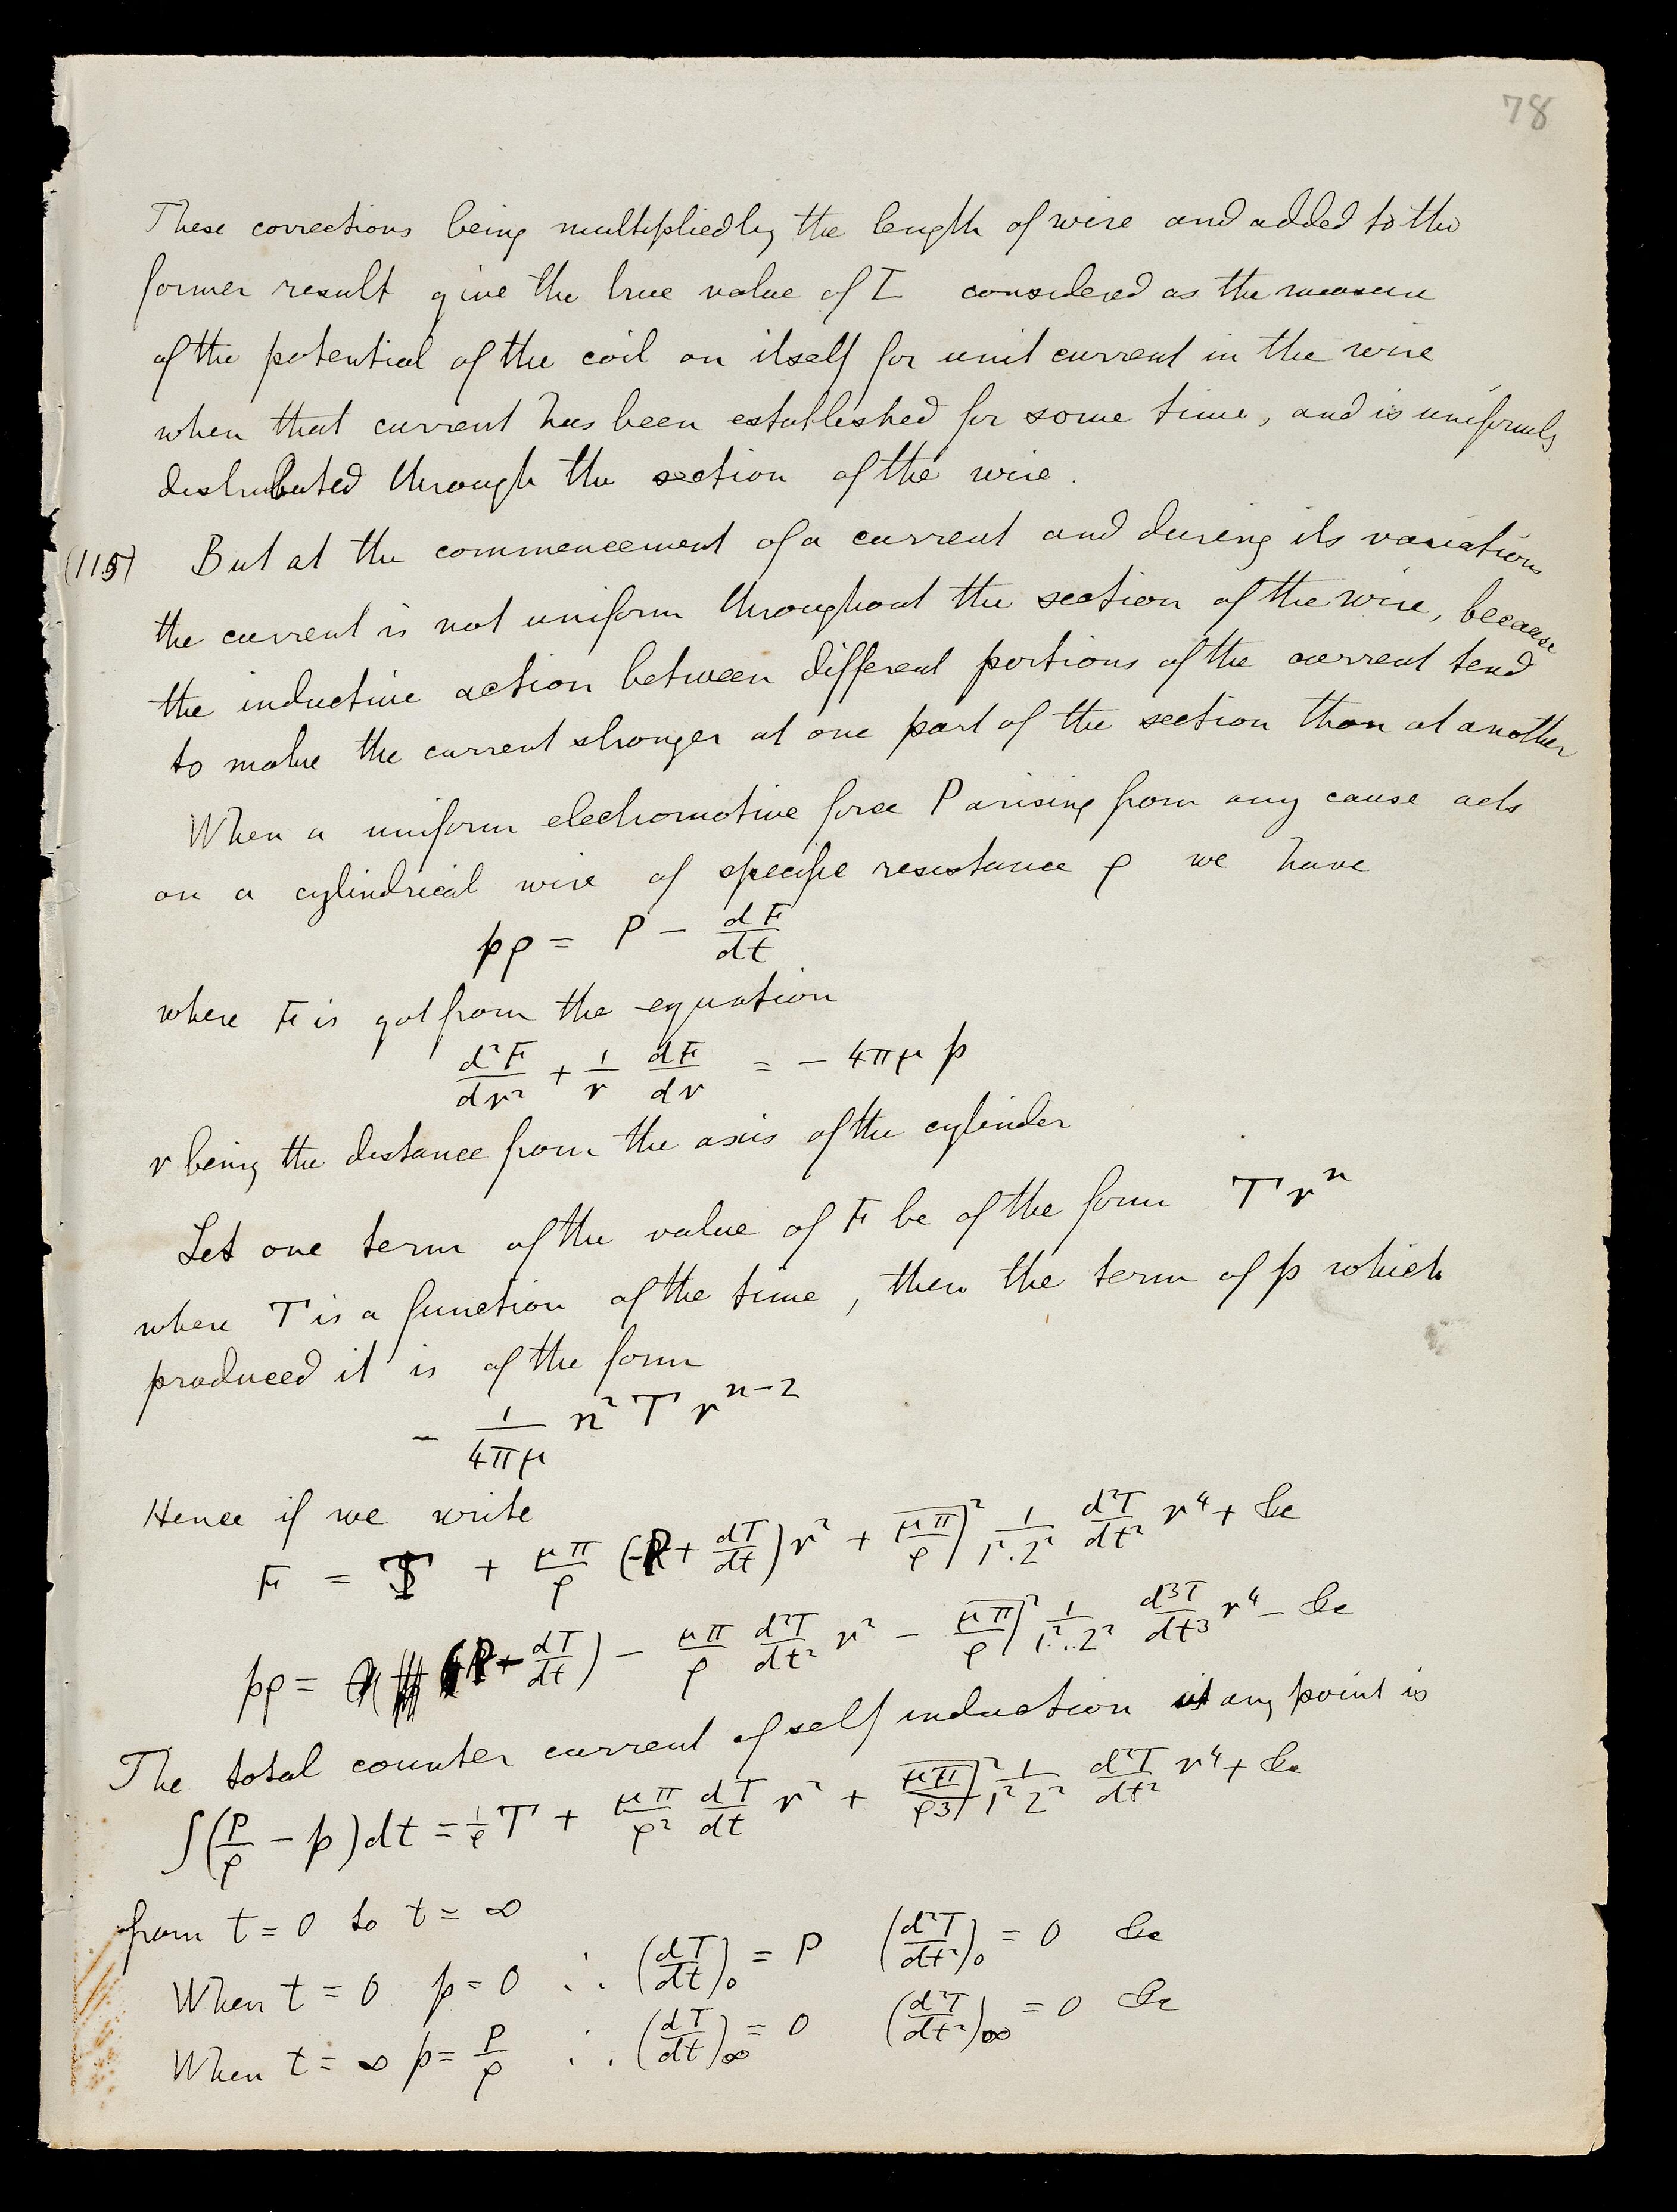 78
These corrections being multiplied by the length of wire and added to the
former result give the true value of L considered as the measure
of the potential of the coil on itself for unit current in the wire
when that current has been established for some time, and is uniformly
distributed through the section of the wire.
(115) But at the commencement of a current and during its variations
the current is not uniform throughout the section of the wire, because
the inductive action between different portions of the current tend
to make the current stronger at one part of the section than at another
When a uniform electromotive force P arising from any cause acts
on a cylindrical wire of specific resistance ρ we have
pρ = P − dF/dt
where F is got from the equation
d²F/dr² + 1/r dF/dr = − 4πμ p
r being the distance from the axis of the cylinder
Let one term of the value of F be of the form T rⁿ
where T is a function of the time, then the term of p which
produced it is of the form
− 1/4πμ n² T rⁿ⁻²
Hence if we write
F = T + μπ/ρ (−P + dT/dt) r² + μπ/ρ)² 1/1².2² d²T/dt² r⁴ + &c
pρ = (P − dT/dt) − μπ/ρ d²T/dt² r² − μπ/ρ)² 1/1².2² d³T/dt³ r⁴ − &c
The total counter current of self induction at any point is
∫(P/ρ − p)dt = 1/ρ T + μπ/ρ² dT/dt r² + μπ/ρ3)² 1/1² 2² d²T/dt² r⁴ + &c
from t = 0 to t = ∞
When t = 0 p = 0 ∴ (dT/dt)₀ = P (d²T/dt²)₀ = 0 &c
When t = ∞ p = P/ρ ∴ (dT/dt)∞ = 0 (d²T/dt²)∞ = 0 &c